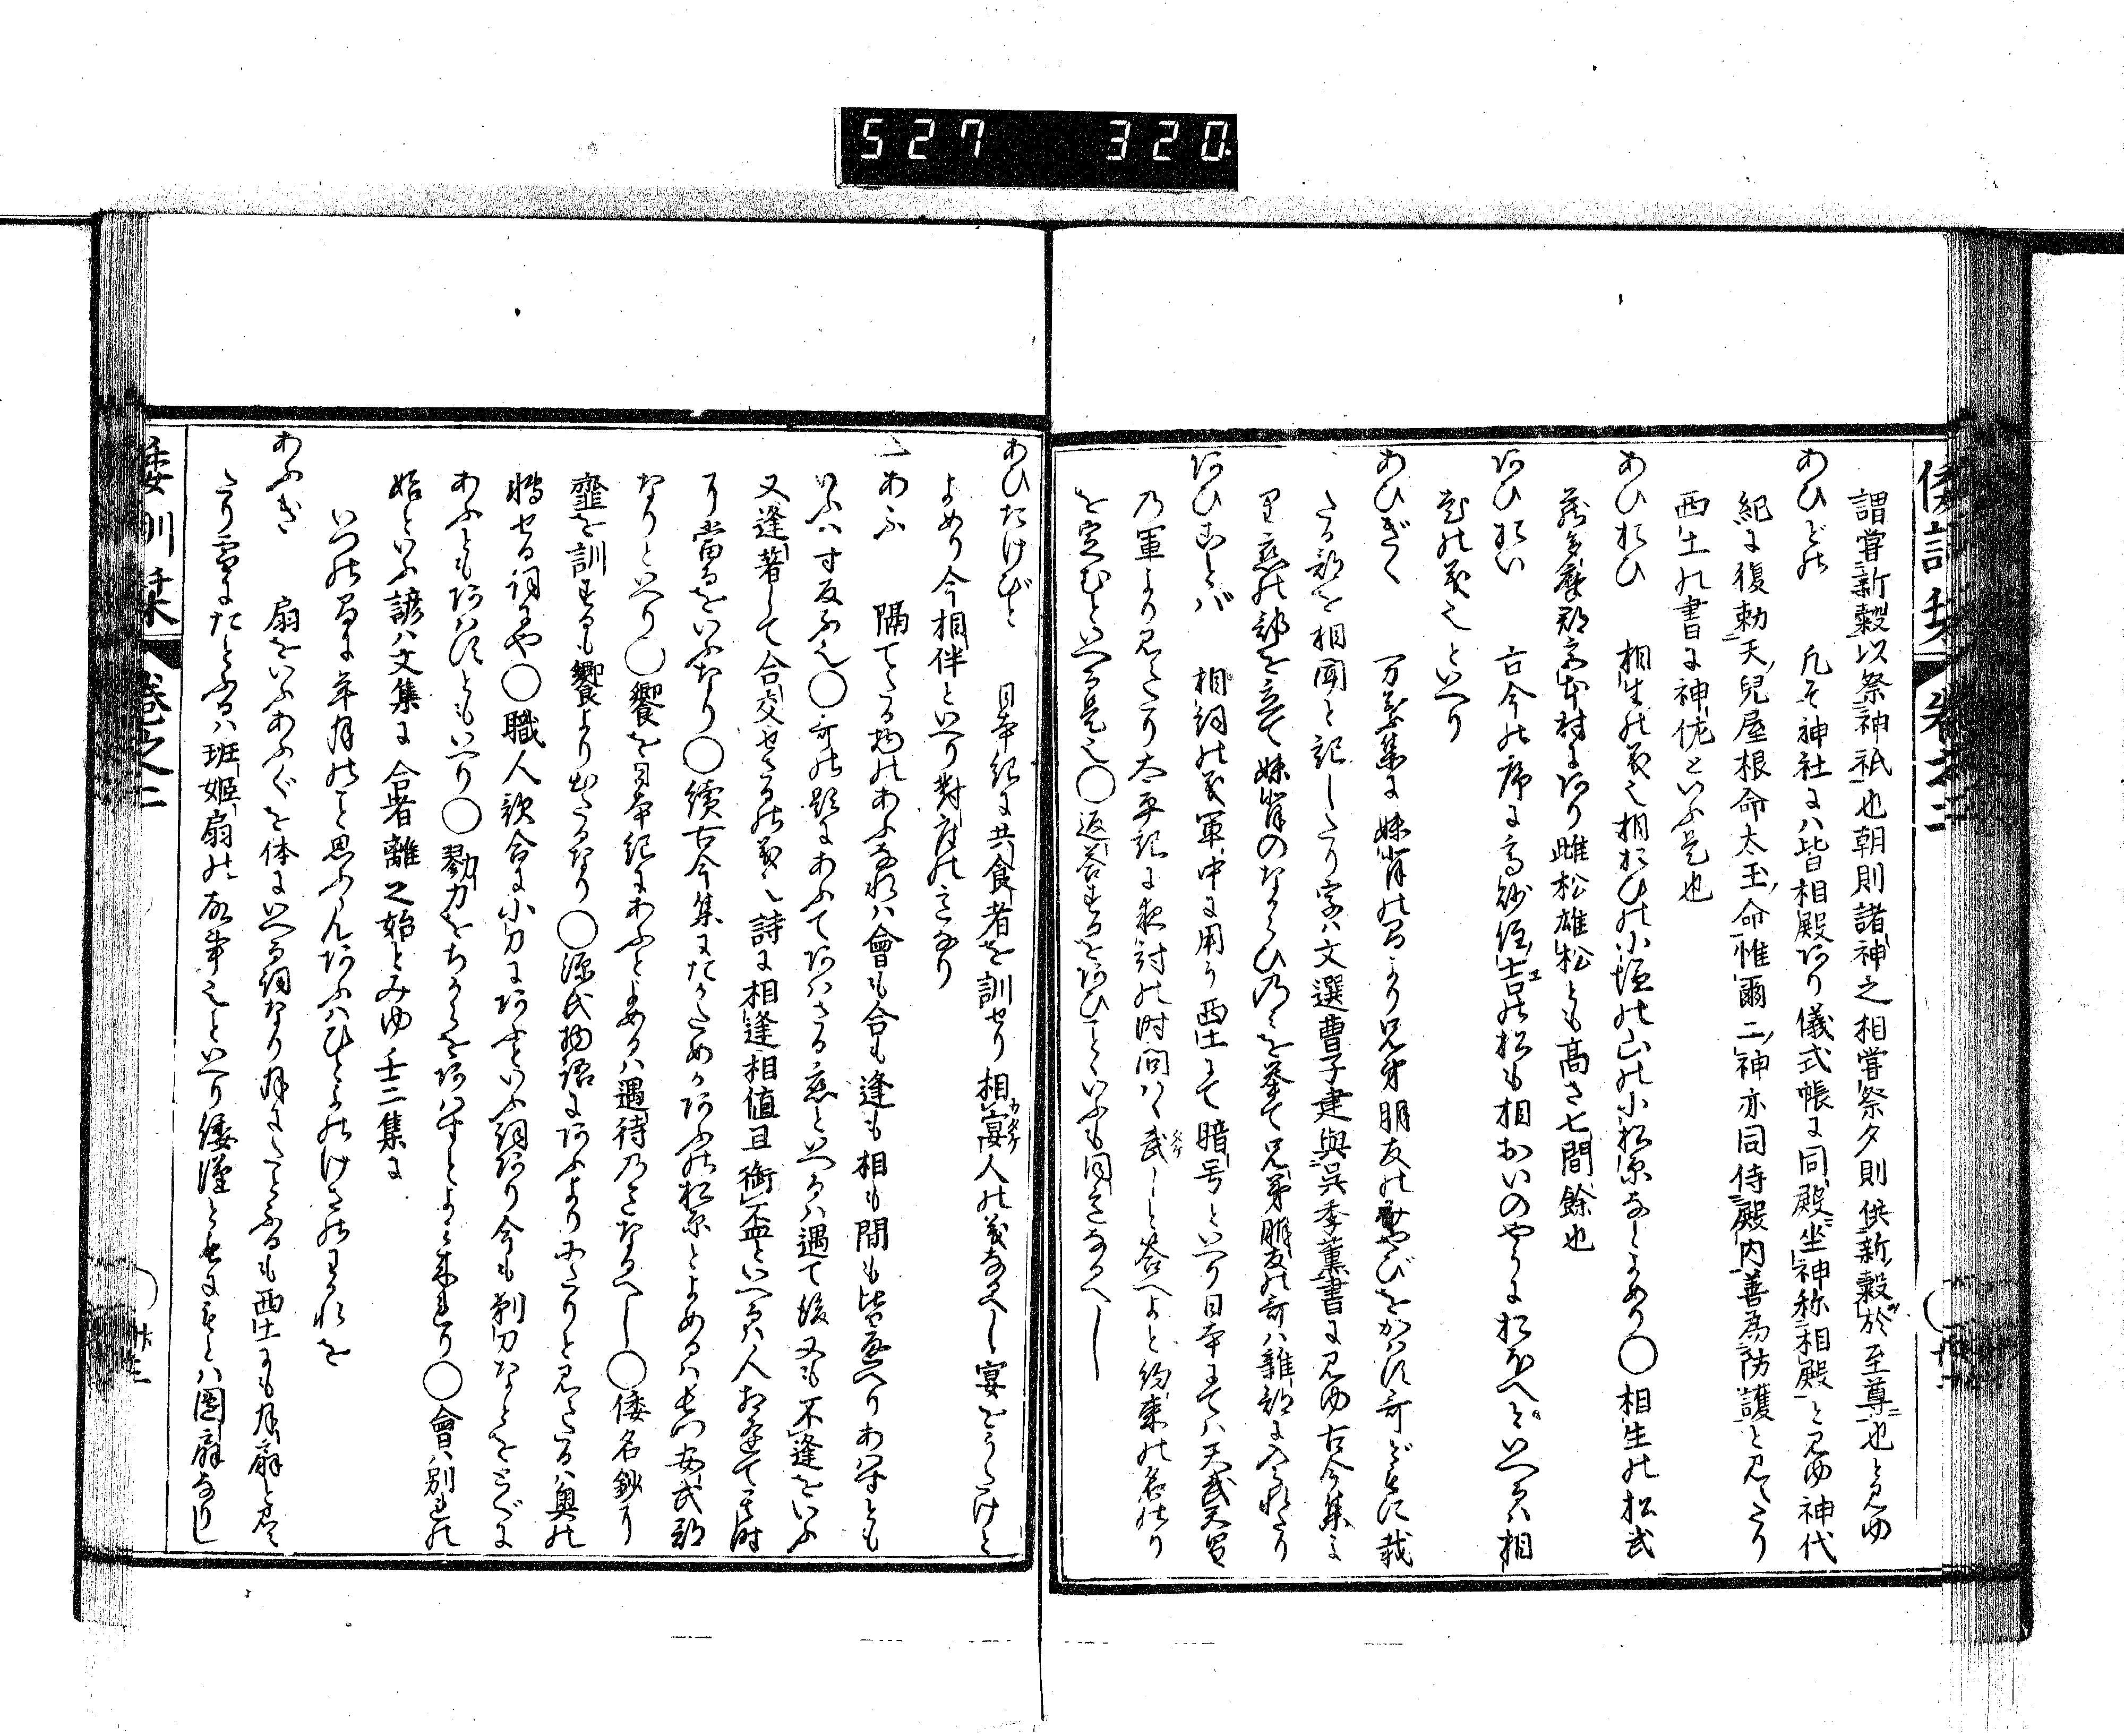 527 320
謂嘗新穀以祭神祇也朝則諸神之相嘗祭夕則供新穀於至尊也と見ゆ
あひどの 凡そ神社には皆相殿あり儀式帳に同殿坐神称相殿と見ゆ神代
紀に復勅天兒屋根命太玉命惟爾二神亦同侍殿内善為防護と見えたり
西土の書に神侂といふ是也
あひおひ 相生の義也相おひの小塩の山の小松原なとよめり○相生の松武
蔵多摩郡宮本村にあり雌松雄松とも高さ七間餘也
あひおい 古今の序に高砂住吉の松も相おいのやうにおほへといへるハ相
老の義也といへり
あひぎく 万葉集に妹背の間より兄弟朋友のみやびをかはす哥どもに載
たる部を相聞と記したり字ハ文選曹子建與呉季薫書に見ゆ古今集に
里恋の部を立て妹背のならひ乃ミを挙て兄弟朋友の哥ハ雑部に入られたり
あひことバ 相詞の義軍中に用う西土にて暗号といへり日本にてハ天武天皇
乃軍より見えたり太平記に夜討の時問はゝ武しと答へよと約束の名のり
を定むといへる是也○返答するをあひことゝいふも同意なるへし
あひたけびと 日本紀に共食者を訓せり相宴人の義なるへし宴をうたけと
よめり今相伴といへり對座の意なり
あふ 隔てたる物のあふなれハ會も合も逢も相も間も皆通へりあはすとも
いふハ寸反ふ也○哥の題にあふてあはさる恋といへるハ遇て後又も不逢をいふ
又逢著して合交せさるの義也詩に相逢相值且銜盃といへるハ人相逢て其時
に當るをいふなり○續古今集にたかためかあふの松原とよめるハ長門安武郡
なりといへり○饗を日本紀にあふとよめるハ遇待乃意なるへし○倭名鈔に
韲を訓するも饗より出たるなり○源氏物語にあふよりにたりと見えたるハ奥の
轉せる詞にや○職人歌合に小刀にあふといふ詞あり今も剃刀なとをとぐに
あふともあはすともいへり○勠力をちからをあはすとよミ来れり○會ハ別れの
始といふ諺ハ文集に合者離之始とみゆ壬二集に
いつの間に年月のミと思ふらんあふハひとよのけさのわかれを
あふぎ 扇をいふあふぐを体にいへる詞なり月にたとふるも西土にも月扇と見え
たり雪にたとふるハ班姫扇の故事也といへり倭漢ともにもとハ團扇なりし
倭訓栞 卷之二